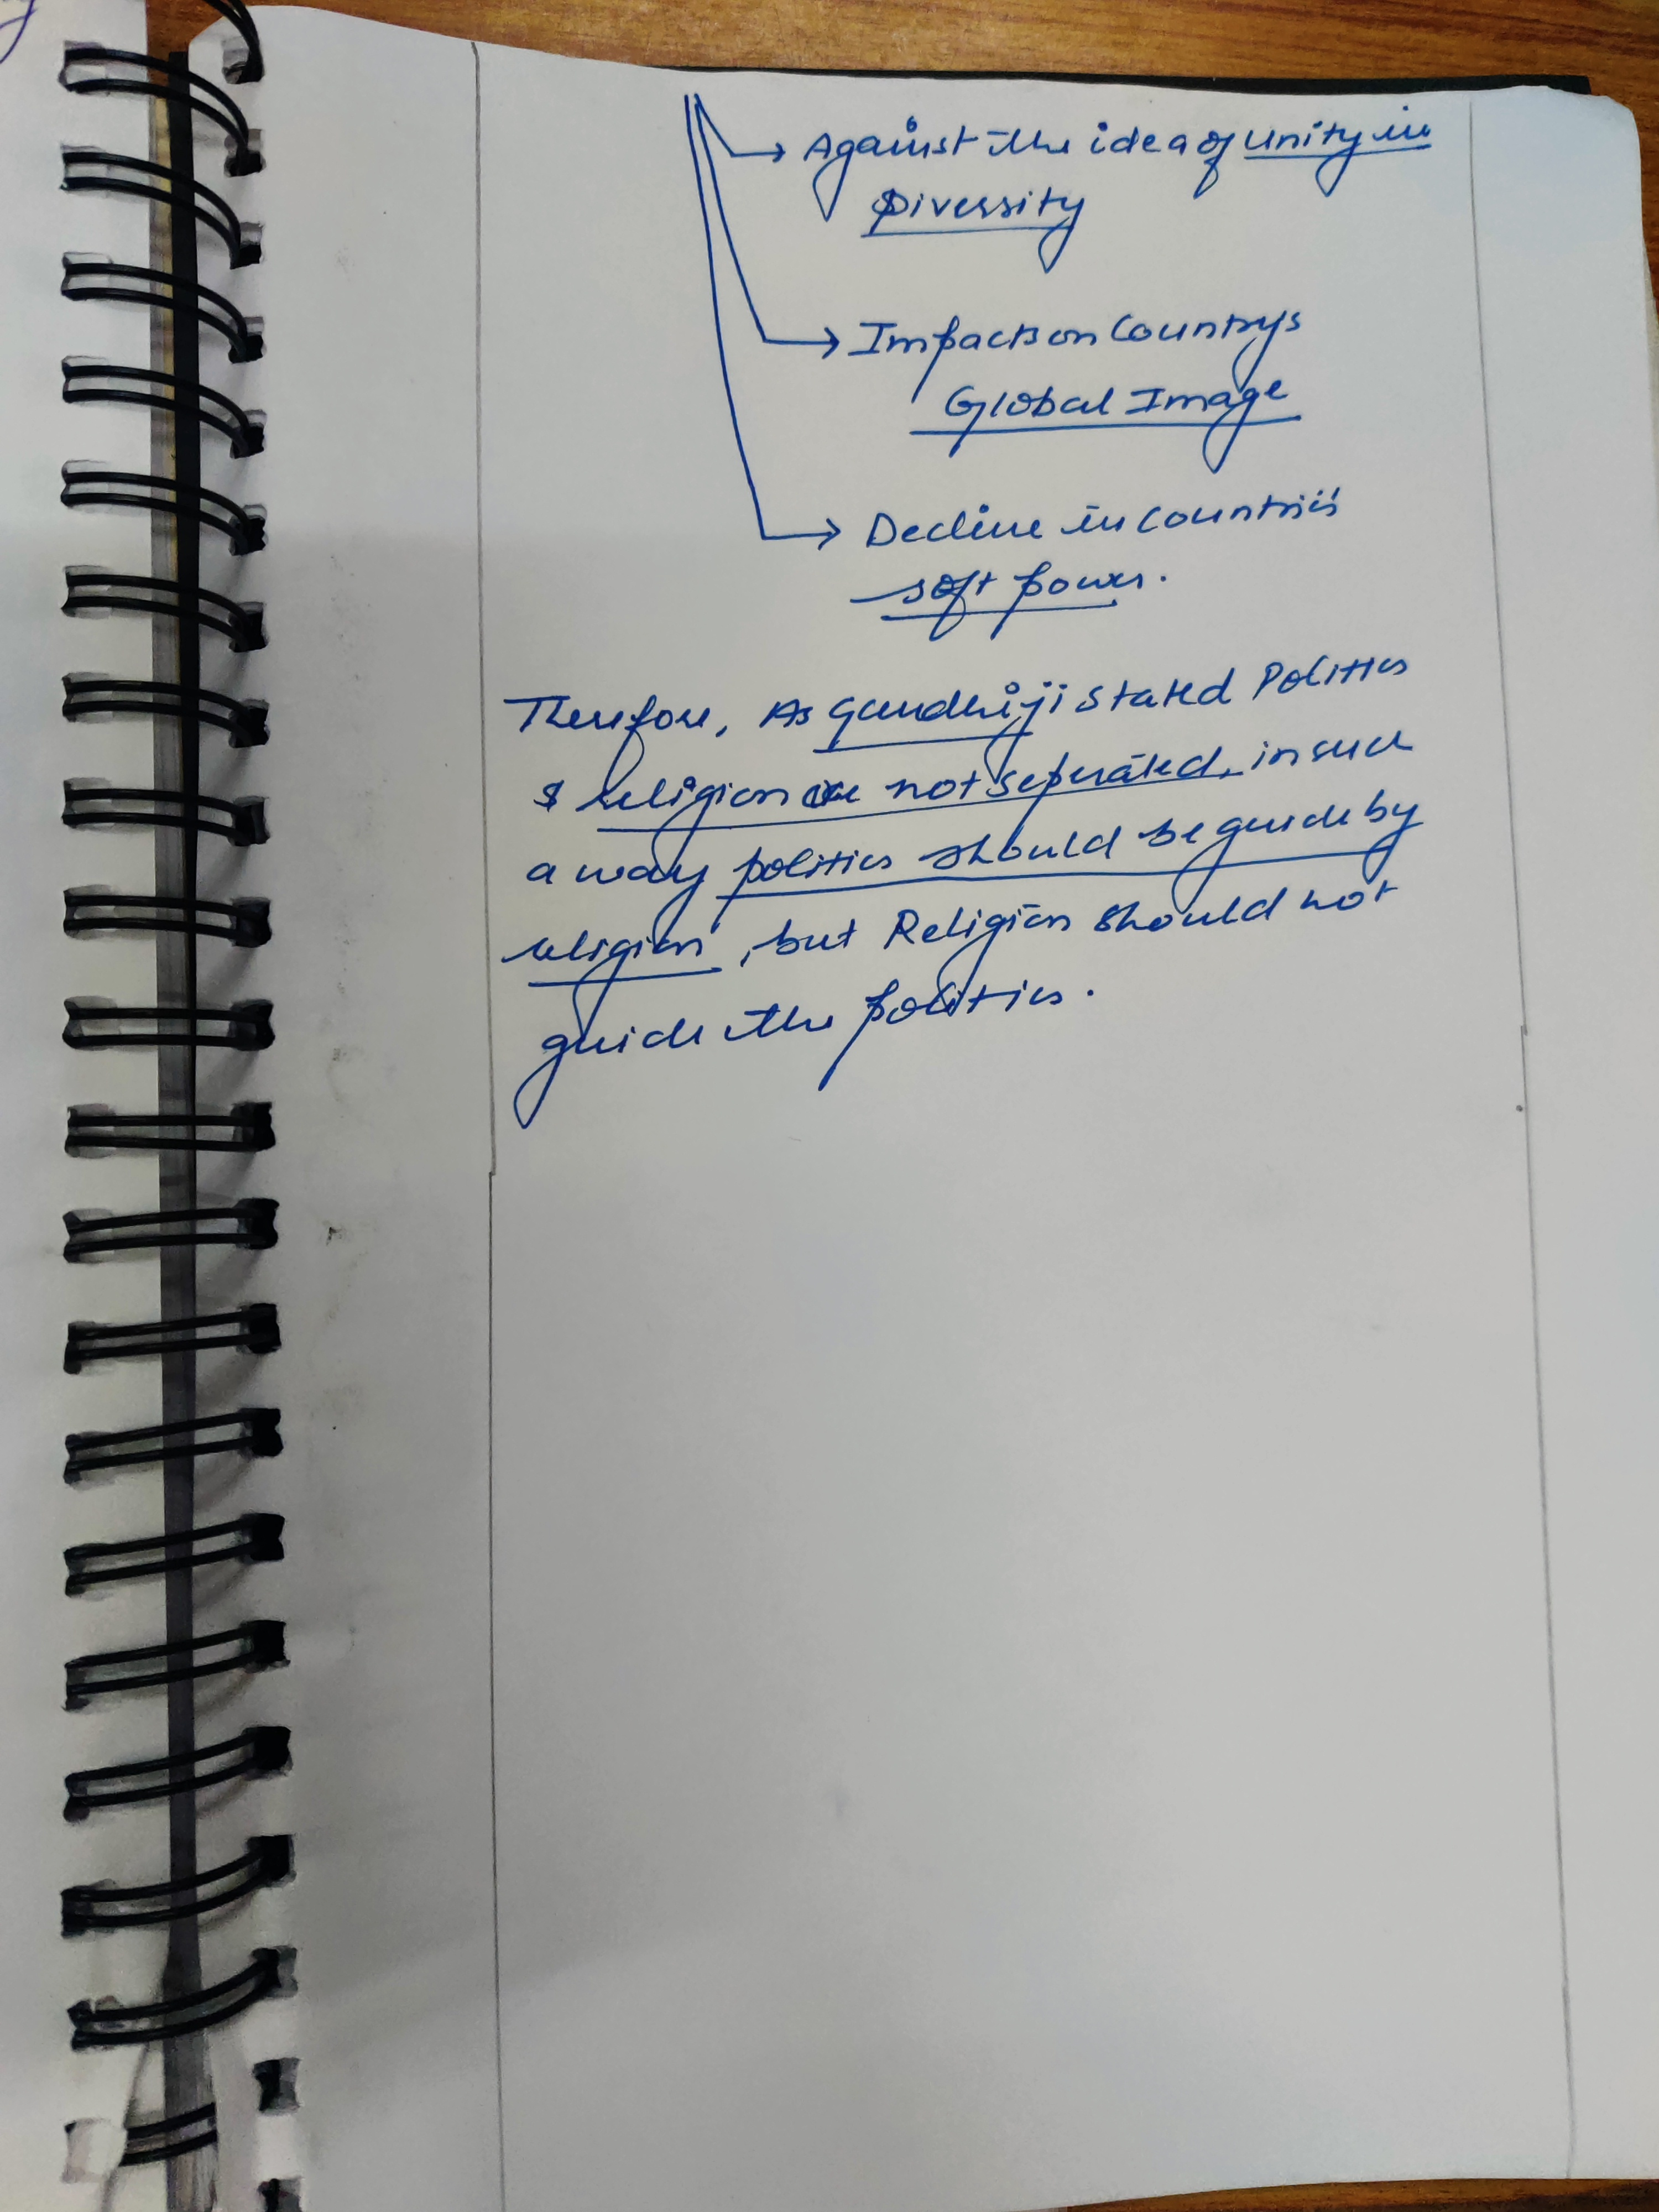 → Against the idea of unity in
Diversity
→ Impacts on Countrys
Global Image
→ Decline in Countries
soft power.
Therefore, As Gandhiji stated Politics
& religion are not seperated, in such
a way politics should be guide by
religion, but Religion should not
guide the politics.